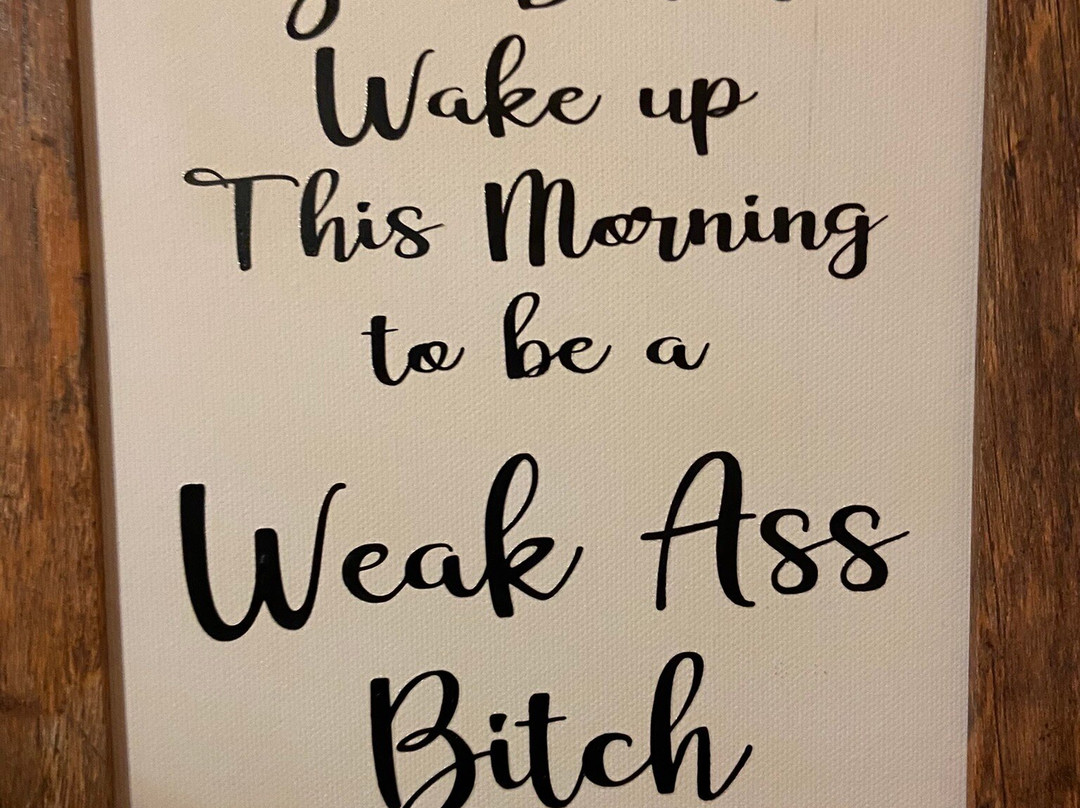 Wake up
This Morning
to be a
Weak Ass
Bitch